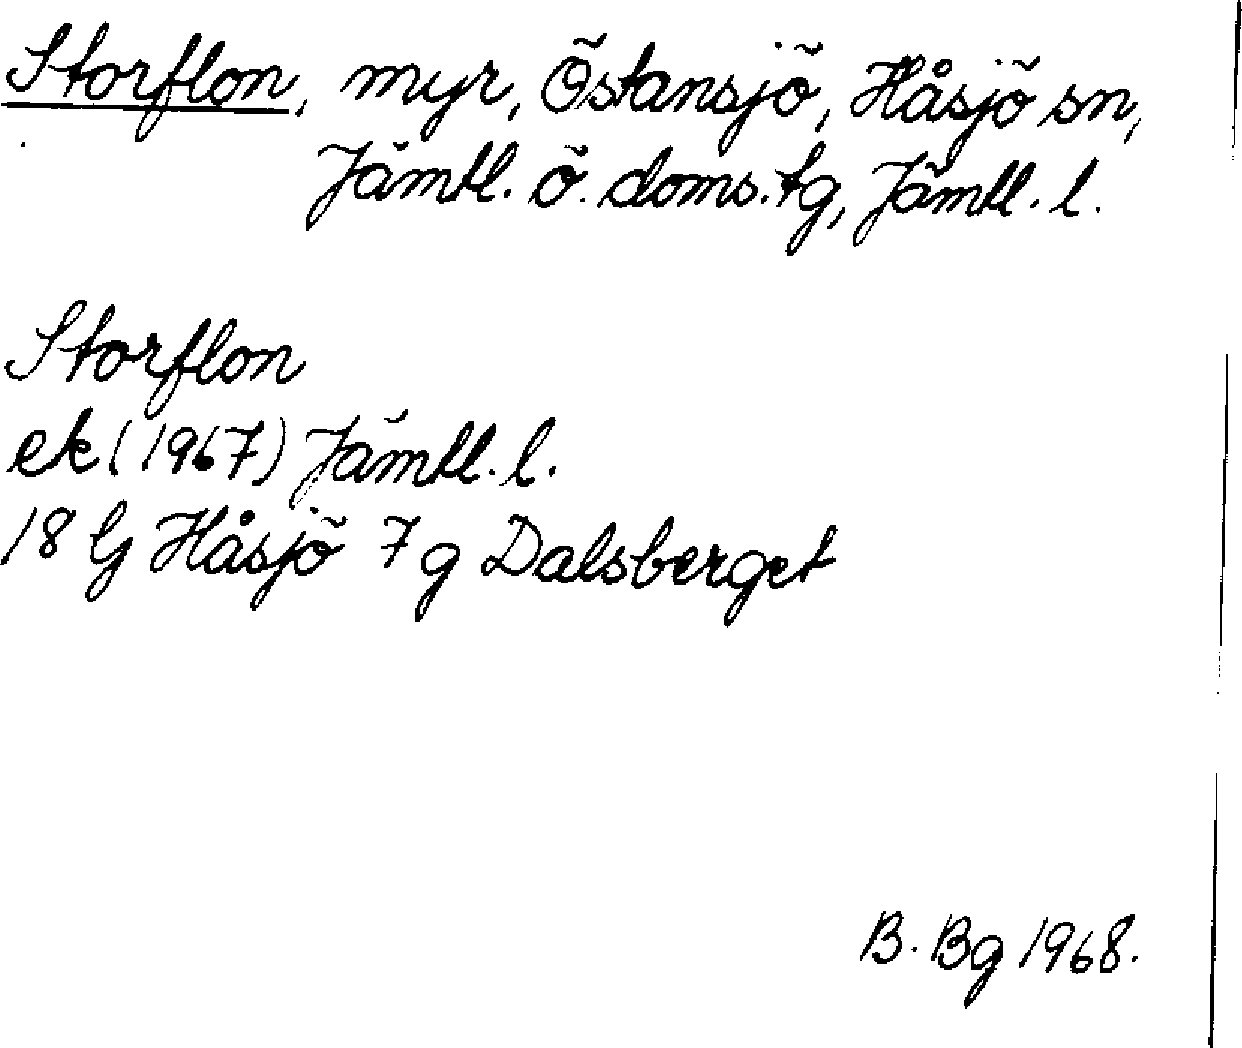 Storflon, myr, Östansjö, Håsjö sn,
Jämtl. ö. doms.tg, Jämtl. l.
Storflon
ek (1967) Jämtl. l.
18 G Håsjö 7 g Dalsberget
B. Bg 1968.